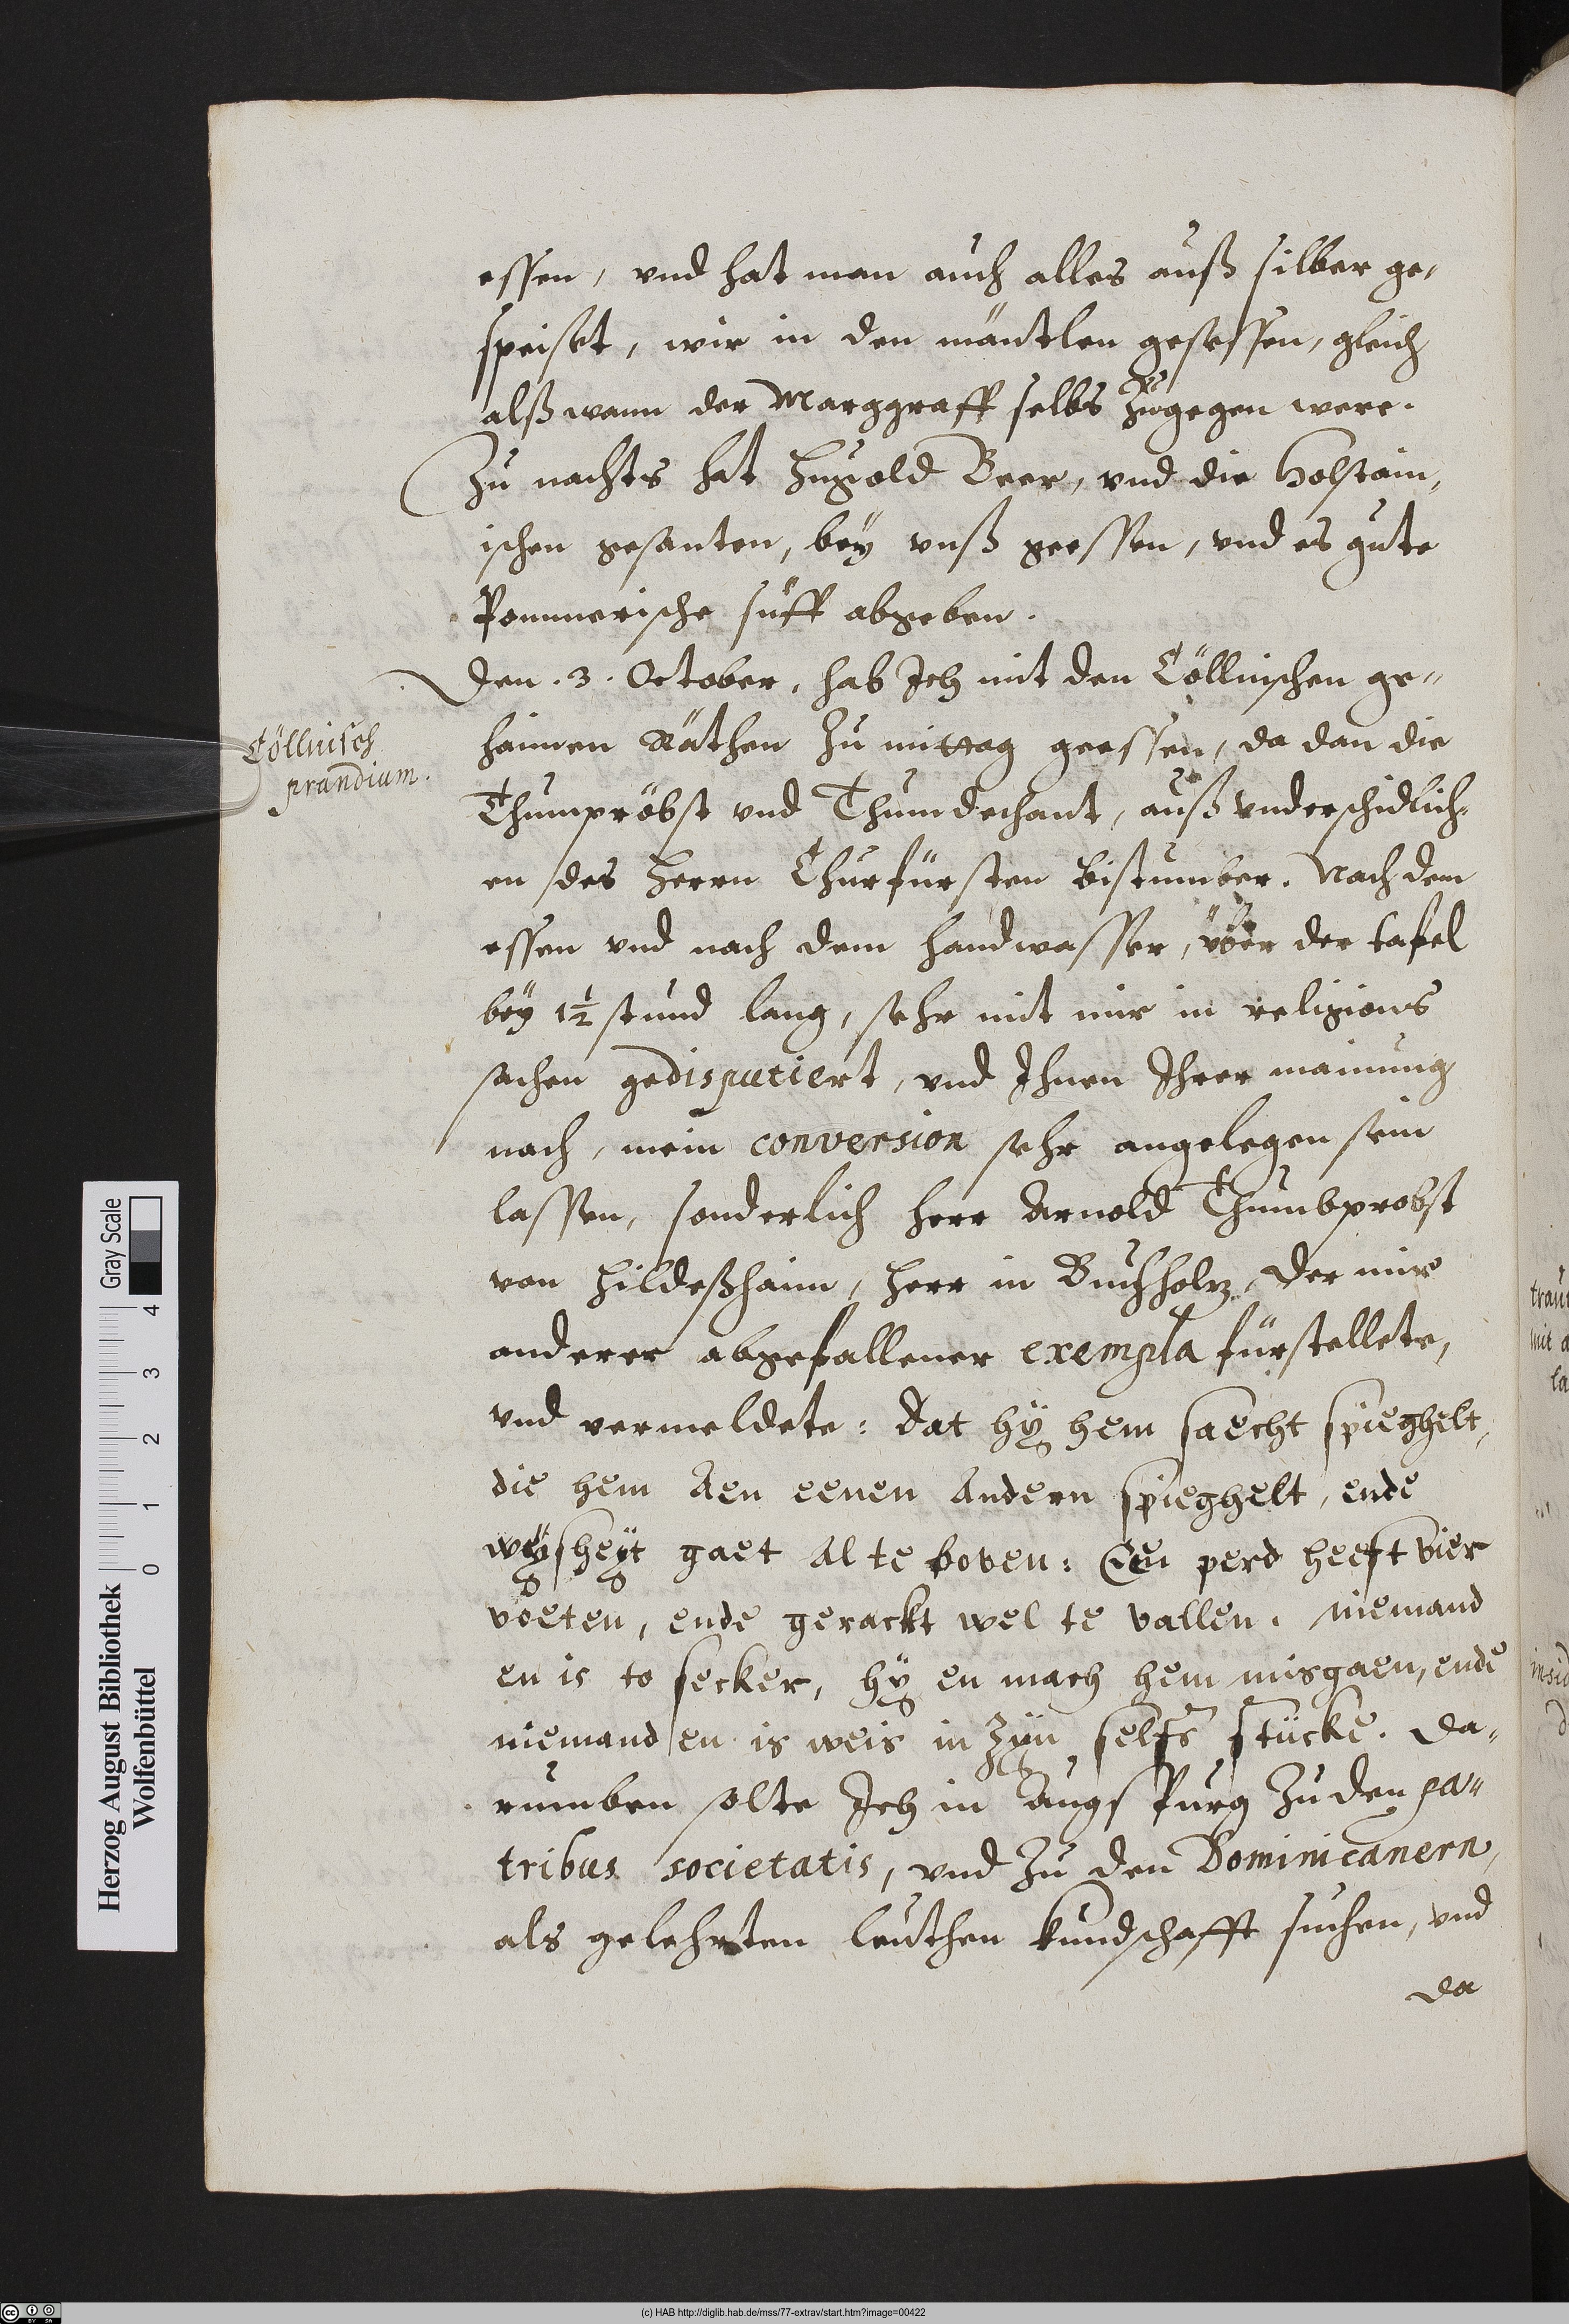 essen, vnd hat man auch alles auß silber ge-
speiset, wir in den mäntlen gesessen, gleich
alß wann der Marggraff selbs zugegen were.
Zu nachts hat Hugold Beer, vnd die Holstain-
ischen gesanten, bey vnß geessen, vnd es gute
Pommerische süff abgeben.
Den .3. October, hab Ich mit den Cöllnischen ge-
haimen Räthen zu mittag geessen, da dan die
Cöllnisch
prandium.
Thumpröbst vnd Thumdechant, auß vnderschidlich-
en des Herrn Churfürsten Bistumber. Nach dem
essen vnd nach dem handwasser, über der tafel
bey 1½ stund lang, sehr mit mir in religions
sachen gedisputiert, vnd Ihnen Ihrer mainung
nach, mein conversion sehr angelegen sein
lassen, sonderlich herr Arnold Thumbprobst
von Hildeßhaim, herr in Buchholz, der mir
anderer abgefallener exempla fürstellete,
vnd vermeldete: dat hÿ hem saecht spieghelt,
die hem aen eenen andern spieghelt, ende
wÿsheÿt gaet al te boven: Een perd heeft vier
voeten, ende gerackt wel te vallen. niemand
en is to secker, hÿ en mach hem misgaen, ende
niemand en is weis in zÿn selfs stücke. Da-
rumben solte Ich in Augspurg zu den pa-
tribus societatis, vnd zu den Dominicanern,
als gelehrten leuthen kundschafft suchen, vnd
da
Herzog August Bibliothek
Wolfenbüttel
Gray Scale
0 1 2 3 4
(c) HAB http://diglib.hab.de/mss/77-extrav/start.htm?image=00422